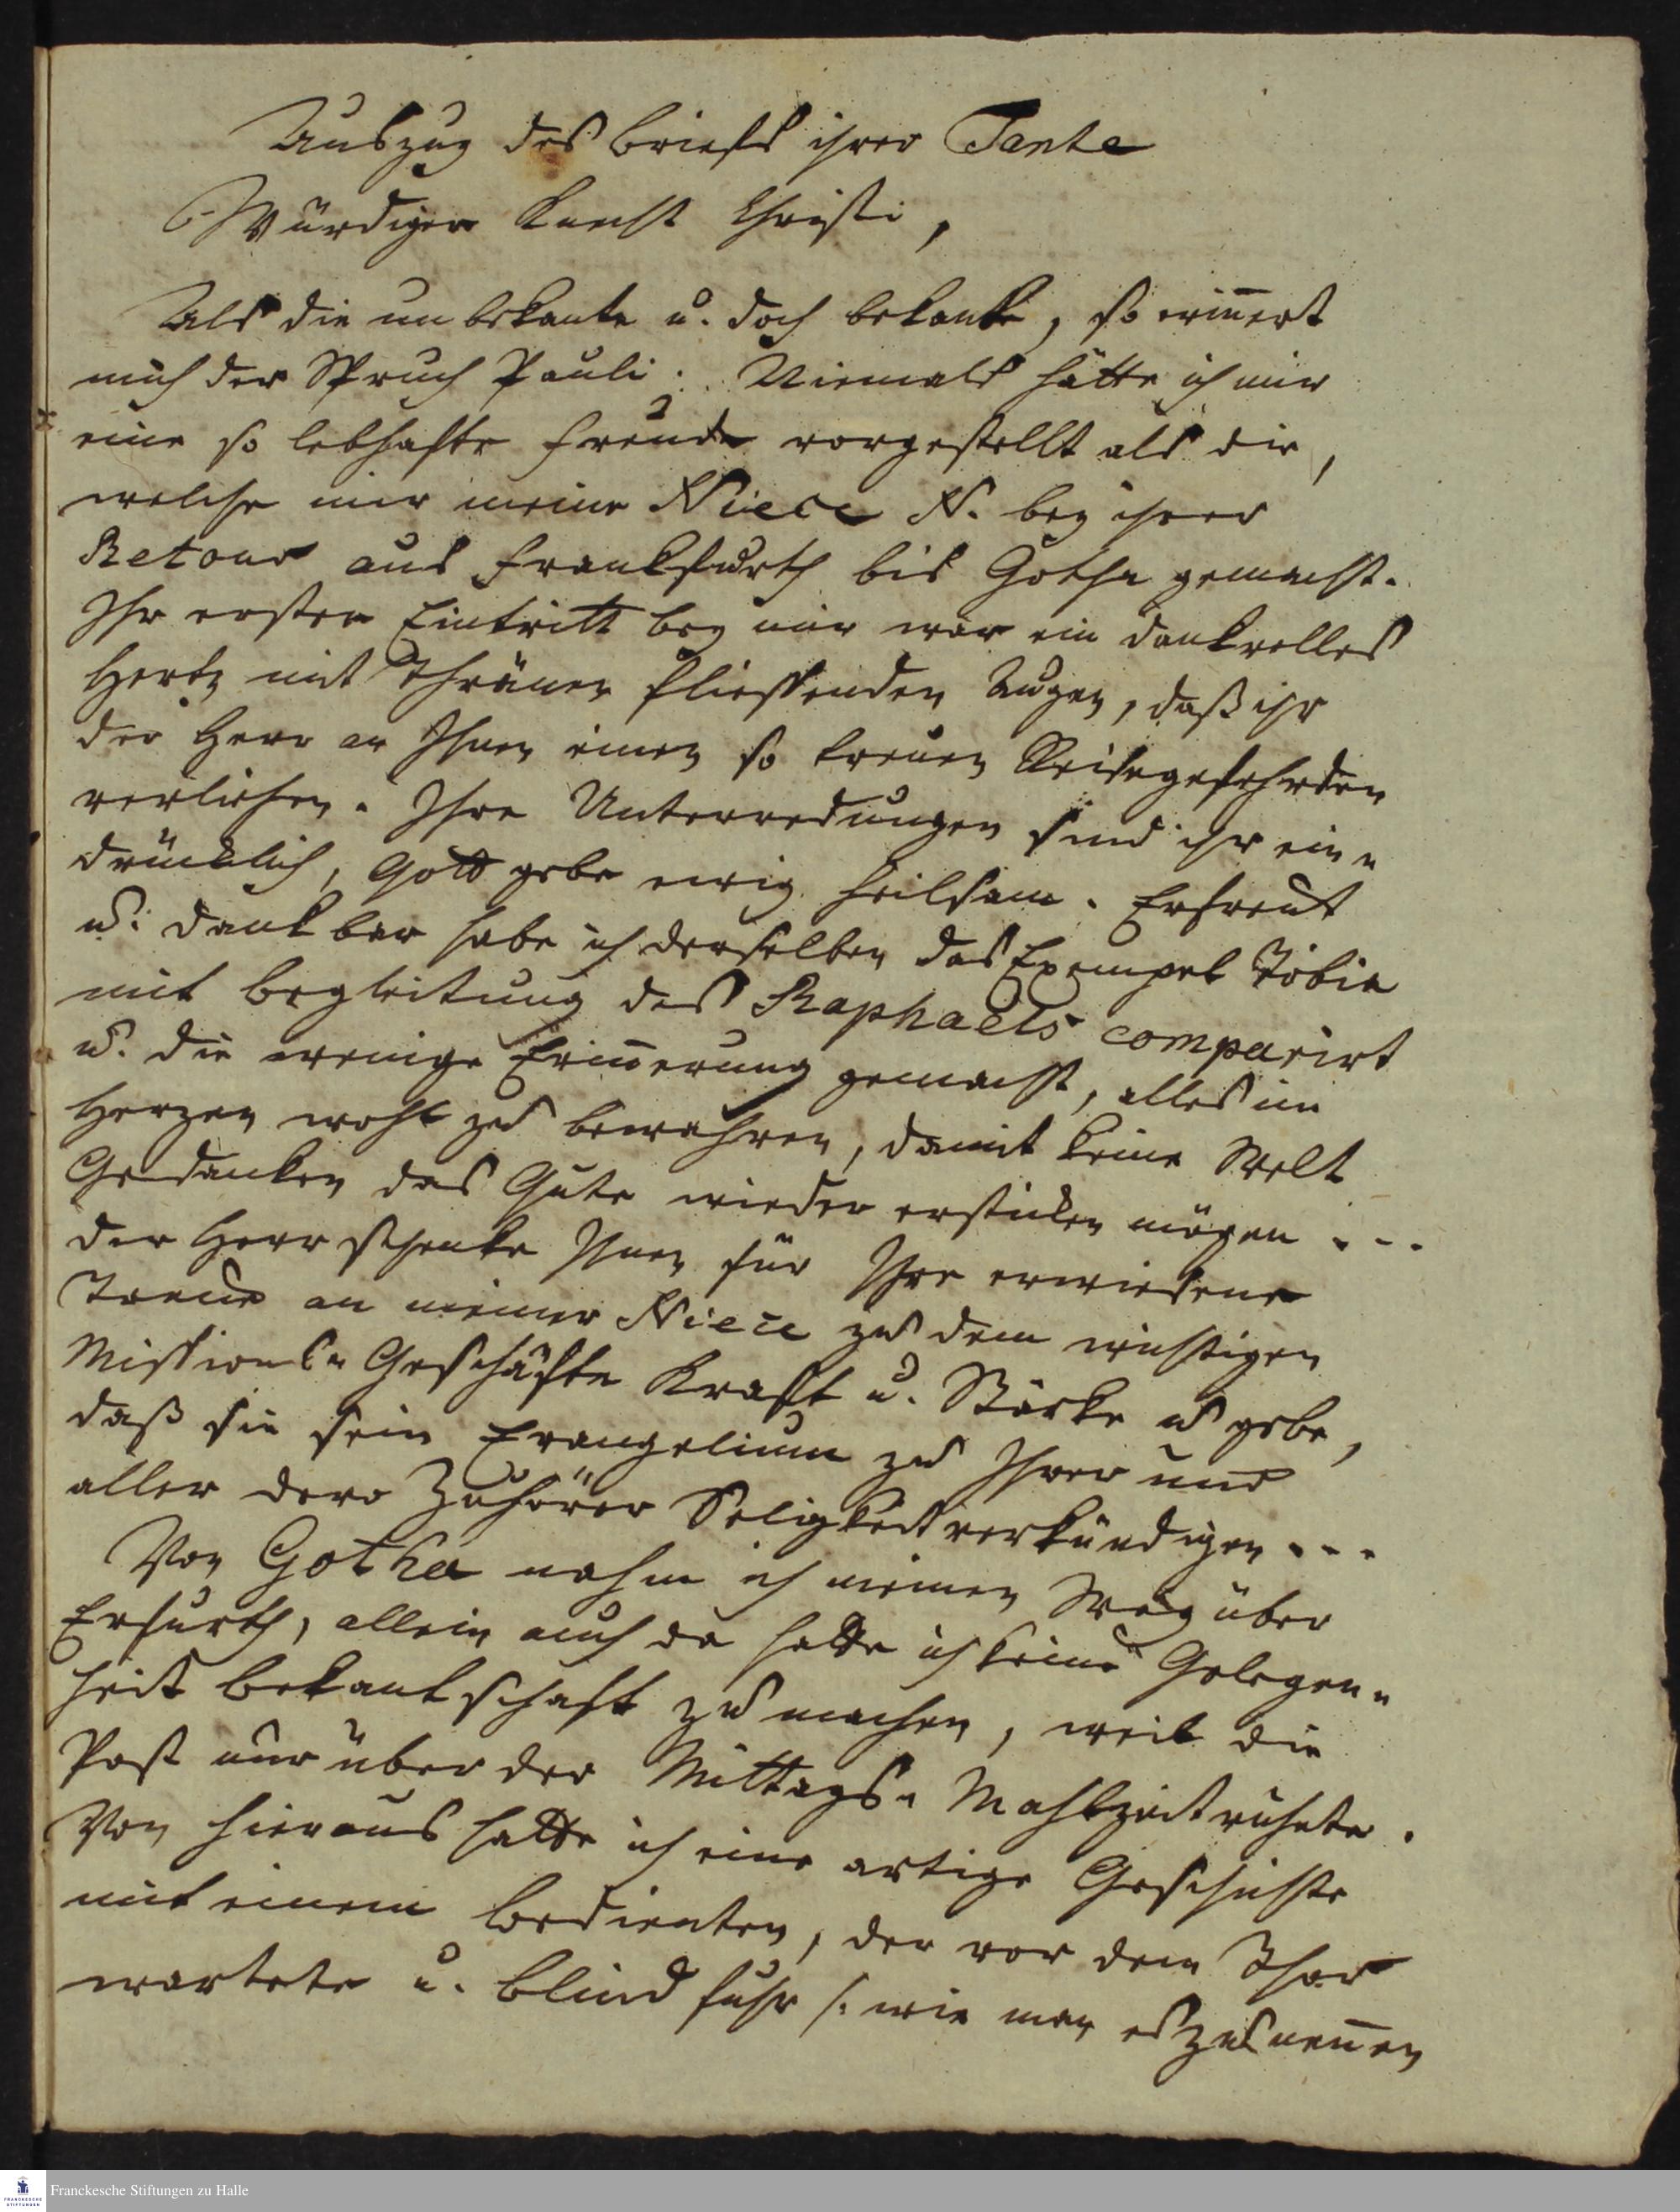 Auszug des briefs ihrer Tante
Würdiger Knecht Christi,
Als die unbekante u. doch bekante, so erinnert
mich der Spruch Pauli. Niemals hätte ich mir
eine so lebhafte Freude vorgestellt als die,
welche mir meine Niece N. bey ihrer
Retour aus Franckfurth bis Gotha gemacht.
Ihr erster Eintritt bey mir war ein dankvolles
Hertz mit Thränen fliessenden Augen, daß ihr
der Herr an Ihnen einen so treuen Reisegefehrden
verliehen. Ihre Unterredungen sind ihr ein-
drücklich, Gott gebe ewig heilsam. Erfreut
u. dankbar habe ich derselben das Exempel Tobiae
mit begleitung des Raphaels comparirt
u. die wenige Erinnerung gemacht, alles im
Herzen wohl zu bewahren, damit keine Welt
Gedanken das Gute wieder ersticken mögen . - -
der Herr schenke Ihnen für Ihre erwiesene
Treue an meiner Niece zu dem wichtigen
Missions- Geschäfte Krafft u. Stärke u gebe,
daß sie sein Evangelium zu Ihrer und
aller dero Zuhörer Seligkeit verkündigen - - -
Von Gotha nahm ich meinen Weg über
Erfurth, allein auch da hatte ich keine Gelegen-
heit bekantschaft zu machen, weil die
Post nur über der Mittags- Mahlzeit ruhete.
Von hieraus hatte ich eine artige Geschichte
mit einem bedienten, der vor dem Thor
wartete u. blind fuhr /: wie man es zu nennen